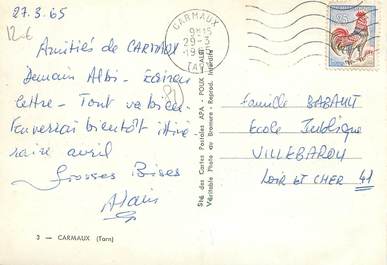 27.3.65
12€
Amitiés de CARMAUX
Demain Albi - Ecrirai
lettre - Tout va bien.
Enverrai bientôt itiné
raire avril
Grosses Bises
Alain
3 — CARMAUX (Tarn)
Sté des Cartes Postales APA - POUX - ALBI
Véritable Photo au Bromure - Reprod. Interdite
CARMAUX
9H15
29-3
Famille BABAULT
Ecole Publique
VILLEBAROU
LOIR ET CHER 41